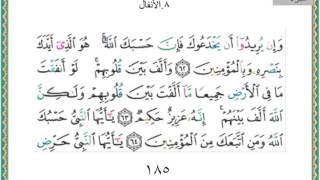 ٨ الأنفال
وَإِن يُرِيدُوٓا۟ أَن يَخْدَعُوكَ فَإِنَّ حَسْبَكَ ٱللَّهُ ۚ هُوَ ٱلَّذِىٓ أَيَّدَكَ
بِنَصْرِهِۦ وَبِٱلْمُؤْمِنِينَ ﴿٦٢﴾ وَأَلَّفَ بَيْنَ قُلُوبِهِمْ ۚ لَوْ أَنفَقْتَ
مَا فِى ٱلْأَرْضِ جَمِيعًا مَّآ أَلَّفْتَ بَيْنَ قُلُوبِهِمْ وَلَٰكِنَّ
ٱللَّهَ أَلَّفَ بَيْنَهُمْ ۚ إِنَّهُۥ عَزِيزٌ حَكِيمٌ ﴿٦٣﴾ يَٰٓأَيُّهَا ٱلنَّبِىُّ حَسْبُكَ
ٱللَّهُ وَمَنِ ٱتَّبَعَكَ مِنَ ٱلْمُؤْمِنِينَ ﴿٦٤﴾ يَٰٓأَيُّهَا ٱلنَّبِىُّ حَرِّضِ
١٨٥